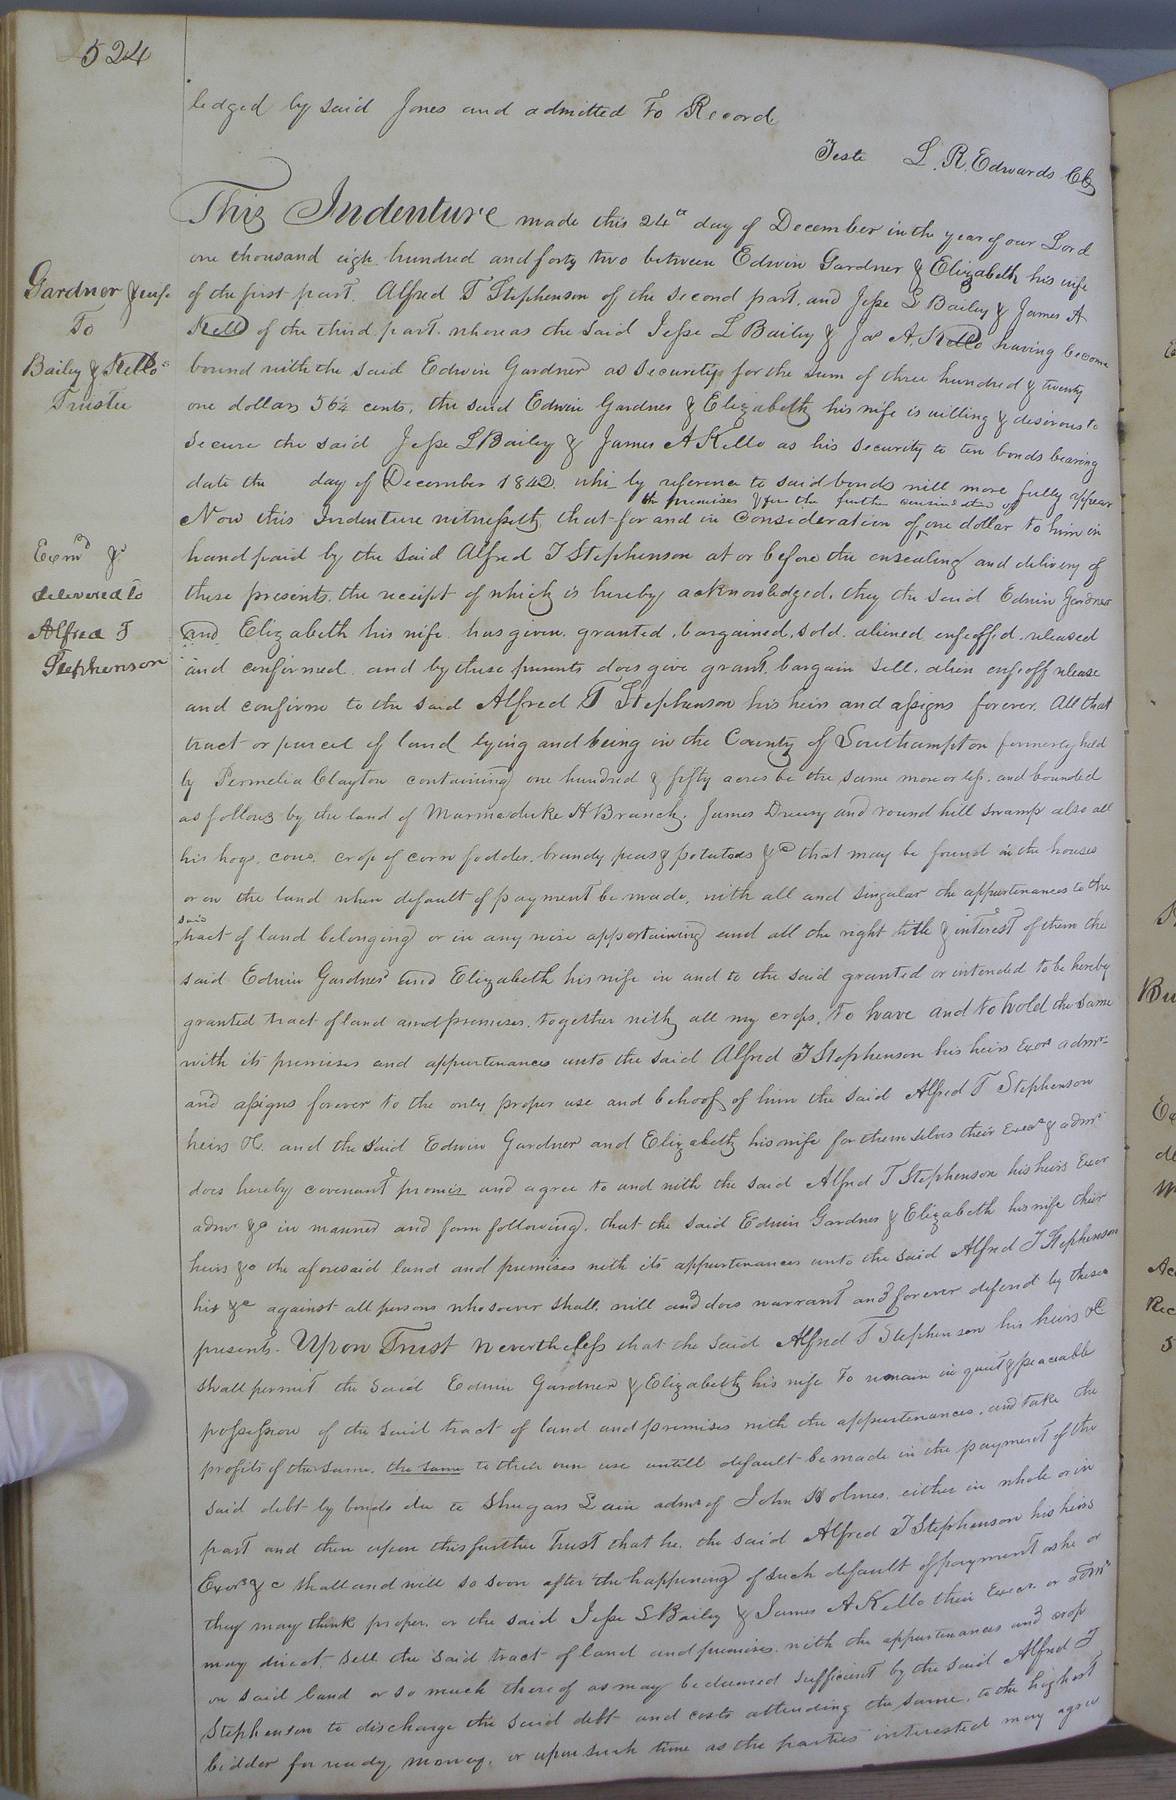 524
ledged by said Jones and admitted To Record
Teste L. R. Edwards Clk
This Indenture made this 24th day of December in the year of our Lord
one thousand eigh hundred and forty two between Edwin Gardner & Elizabeth his wife
Gardner & wife
of the first part. Alfred T Stephenson of the second part. and Jesse L Bailey & James A
To
Kello of the third part. whereas the said Jesse L Bailey & Jas A. Kello having become
Bailey & Kello's
bound with the said Edwin Gardner as securitys for the sum of three hundred & twenty
Trustee
one dollars 56¼ cents, the said Edwin Gardner & Elizabeth his wife is willing & desirous to
secure the said Jesse L Bailey & James A Kello as his security to ten bonds bearing
date the day of December 1842. whi by reference to said bonds will more fully appear
the premises & for the further consideration of
Now this Indenture witnesseth that for and in Consideration of one dollar to him in
Exmd &
hand paid by the said Alfred T Stephenson at or before the ensealing and delivery of
delivered to
these presents. the receipt of which is hereby acknowledged. they the said Edwin Gardner
Alfred T
and Elizabeth his wife has given. granted. bargained. sold. aliened enfeoffed. released
Stephenson
and confirmed and by these presents does give grant. bargain sell. alien enfeoff release
and confirm to the said Alfred T Stephenson his heirs and assigns forever. All that
tract or parcel of land lying and being in the County of Southampton formerly held
by Permelia Clayton containing one hundred & fifty acres be the same more or less. and bounded
as follows by the land of Marmaduke A Branch. James Drewry and round hill swamp also all
his hogs. cows. crop of corn fodder. brandy peas & potatoes &c that may be found in the houses
or on the land when default of payment be made. with all and singular the appurtenances to the
said
tract of land belonging or in any wise appertaining and all the right title & interest of them the
said Edwin Gardner and Elizabeth his wife in and to the said granted or intended to be hereby
granted tract of land and premises. together with all my crops. To have and to hold the same
with its premises and appurtenances unto the said Alfred T Stephenson his heirs Exors admrs
and assigns forever to the only proper use and behoof of him the said Alfred T Stephenson
heirs &c. and the said Edwin Gardner and Elizabeth his wife for themselves their Execrs & admrs
does hereby covenant promis and agree to and with the said Alfred T Stephenson his heirs Exor
admr &c in manner and form following. that the said Edwin Gardner & Elizabeth his wife their
heirs &c the aforesaid land and premises with its appurtenances unto the said Alfred T Stephenson
his &c against all persons whosoever shall will and does warrant and forever defend by these
presents. Upon Trust nevertheless that the said Alfred T Stephenson his heirs &c
shall permit the said Edwin Gardner & Elizabeth his wife To remain in quiet & peaceable
possession of the said tract of land and premises with the appurtenances. and take the
profits of the same. the same to their own use untill default be made in the payment of the
said debt by bonds due to Shugars Lain admr of John Holmes. either in whole or in
part and then upon this further Trust that he. the said Alfred T Stephenson his heirs
Exors &c shall and will so soon after the happening of such default of payment as he or
they may think proper. or the said Jesse L Bailey & James A Kello their Execr. or admr
may direct. sell the said tract of land and premises. with the appurtenances and crop
on said land or so much thereof as may be deemed sufficient by the said Alfred T
Stephenson to discharge the said debt and costs attending the same. to the highest
bidder for ready money. or upon such time as the parties interested may agree